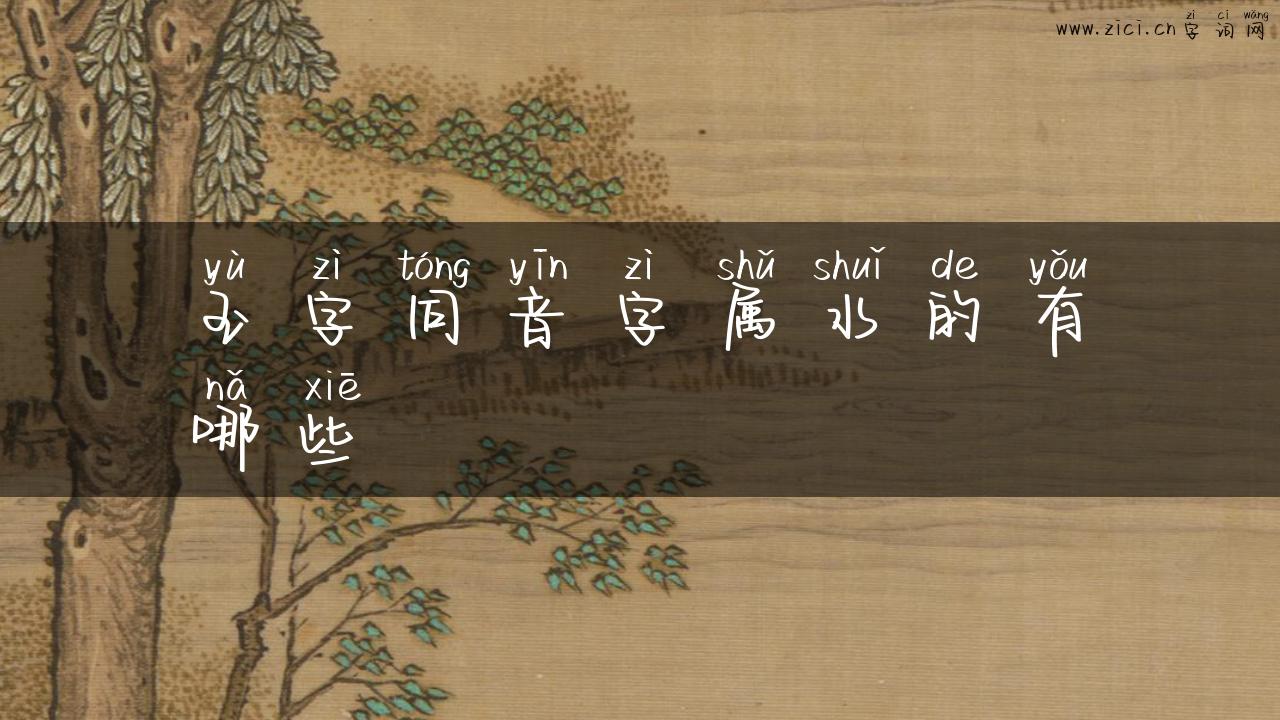 zì cí wǎng
www.zici.cn 字词网
yù zì tóng yīn zì shǔ shuǐ de yǒu
玉字同音字属水的有
nǎ xiē
哪些